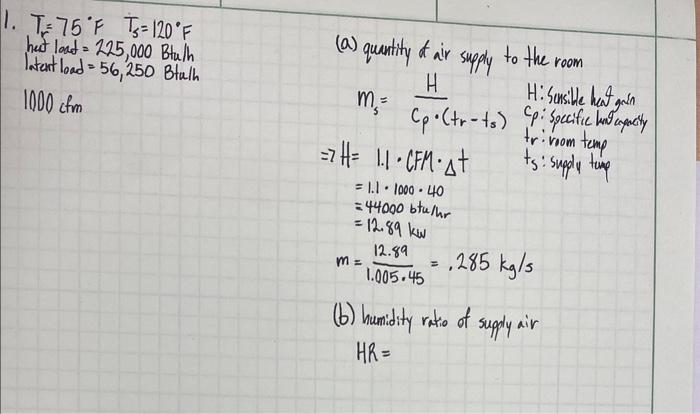 1. Tr= 75°F Ts=120°F
heat load = 225,000 Btu/h
latent load = 56,250 Btu/h
1000 cfm
(a) quantity of air supply to the room
ms= H / Cp·(tr-ts)
H: Sensible heat gain
Cp: Specific heat capacity
tr: room temp
ts: supply temp
=> H= 1.1 · CFM · Δt
= 1.1 · 1000 · 40
= 44000 btu/hr
= 12.89 kw
m = 12.89 / 1.005·45 = .285 kg/s
(b) humidity ratio of supply air
HR=